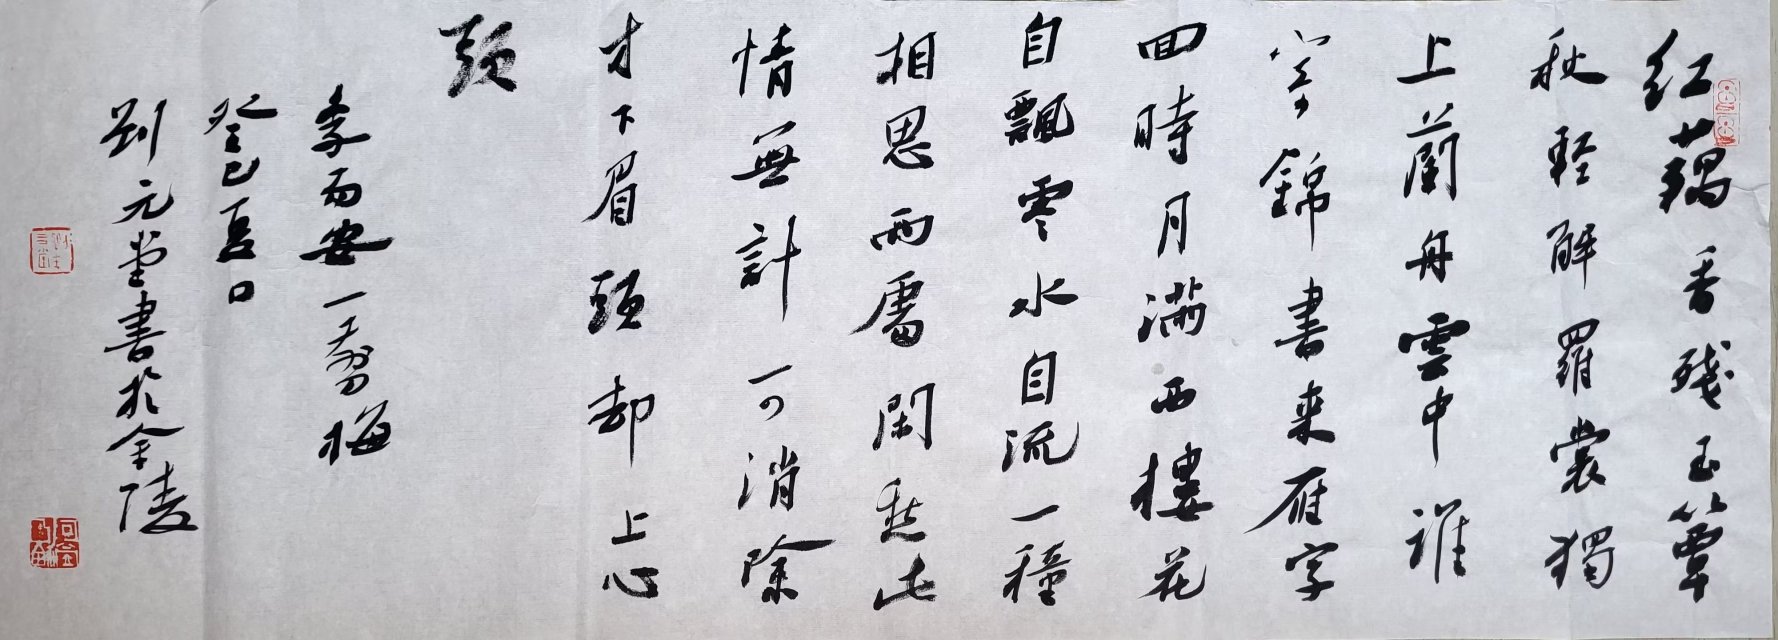 红藕香残玉簟
秋輕解羅裳獨
上蘭舟雲中誰
寄錦書来雁字
回時月滿西樓花
自飄零水自流一種
相思兩處閑愁此
情無計可消除
才下眉頭却上心
頭
李易安一剪梅
癸巳夏日
劉元堂書於金陵